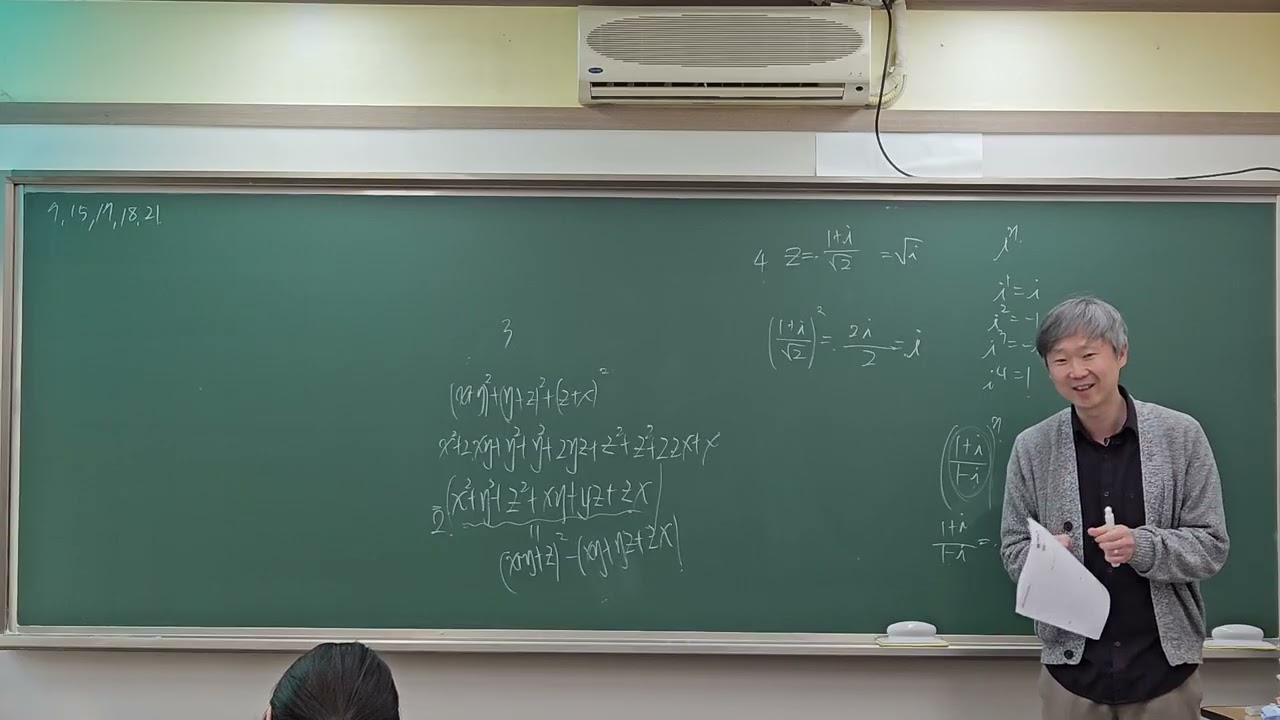 9, 15, 17, 18, 21
3
(x+y)²+(y+z)²+(z+x)²
x²+2xy+y²+y²+2yz+z²+z²+2zx+x
2(x²+y²+z²+xy+yz+zx)
"
(x+y+z)²-(xy+yz+zx)
4 z= (1+i)/√2 =√i
((1+i)/√2)²= 2i/2 =i
iⁿ
i¹=i
i²=-1
i³=-i
i⁴=1
((1+i)/(1-i))ⁿ
(1+i)/(1-i) =